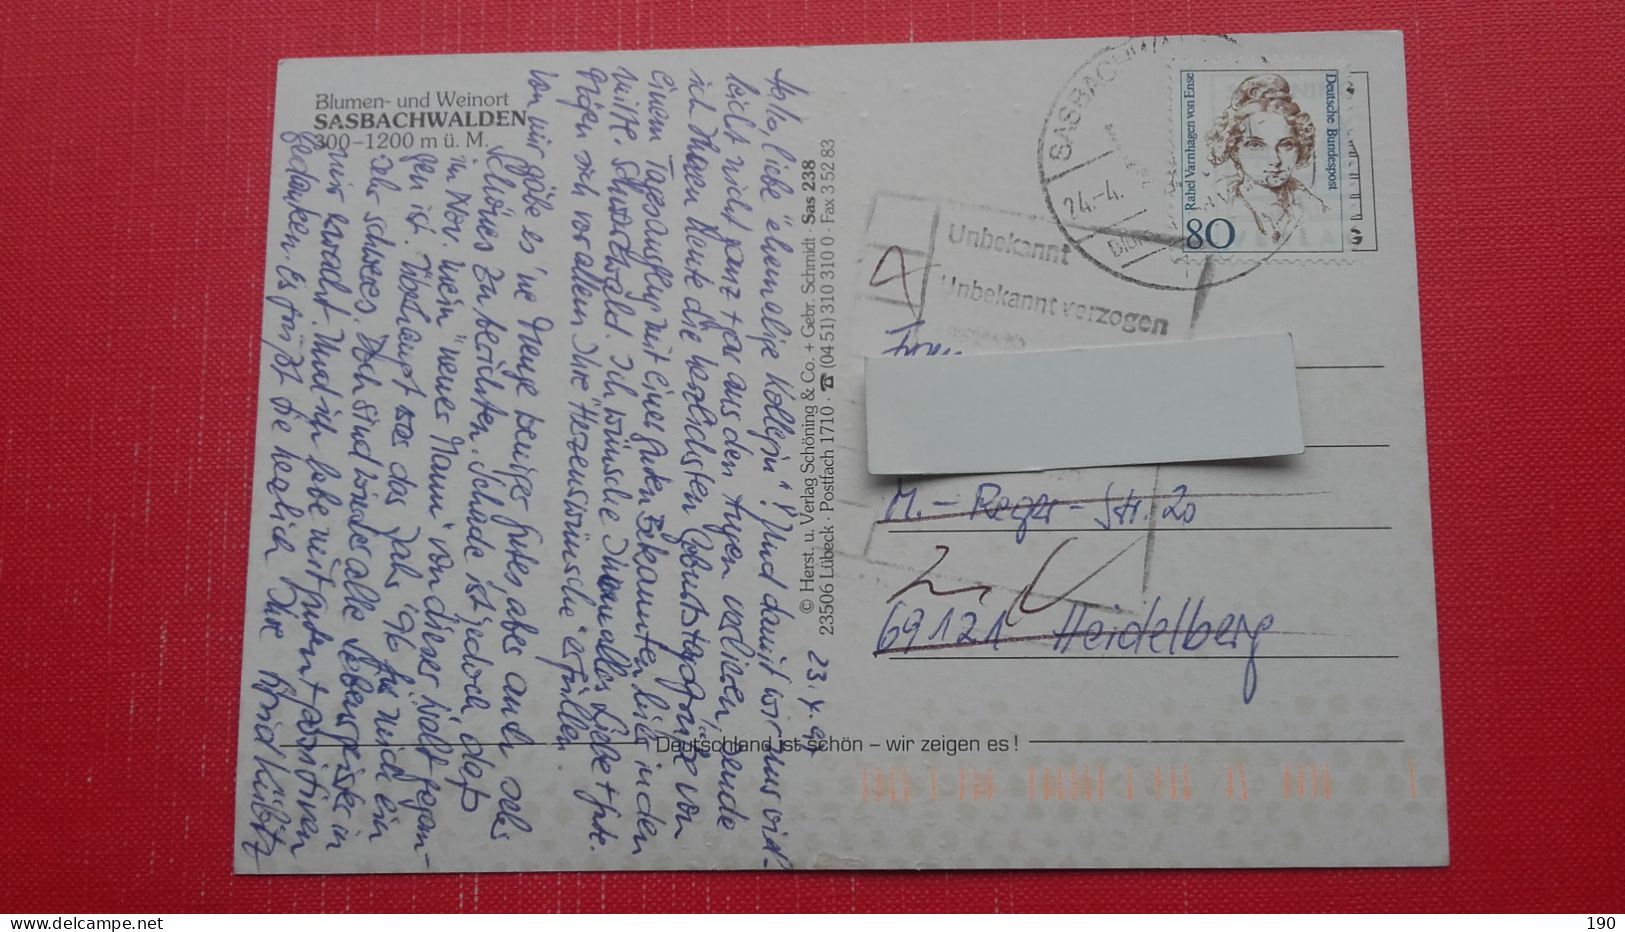 Blumen- und Weinort
SASBACHWALDEN
300–1200 m ü. M.
Hallo, liebe "ehemalige Kollegin"! Und damit wir uns viel-
leicht nicht ganz + gar aus den Augen verlieren, sende
ich Ihnen heute die herzlichsten Geburtstagsgrüße von
einem Tagesausflug mit einer guten Bekannten hier in den
Schwarzwald. Ich wünsche Ihnen alles Liebe + Gute.
Mögen sich vor allem Ihre "Herzenswünsche" erfüllen.
Von mir gäbe es 'ne Menge weniger gutes aber auch sehr
schönes zu berichten. Schade ist jedoch, daß
im Nov. mein "neuer Mann" von dieser Welt gegan-
gen ist. Überhaupt war das Jahr '96 für mich ein
sehr schweres. Doch sind wir nicht alle
Und ich lebe mit guten + positiven
Gedanken. Es grüßt Sie herzlich Ihre
© Herst. u. Verlag Schöning & Co. + Gebr. Schmidt · Sas 238
23506 Lübeck · Postfach 1710 · ☎ (04 51) 310 310 0 · Fax 3 52 83
23.
Deutschland ist schön – wir zeigen es!
SASBACHWA
24.-4.
Deutsche Bundespost
Rahel Varnhagen von Ense
80
Unbekannt
Unbekannt verzogen
Frau
M.-Reger-Str. 20
69121 Heidelberg
190